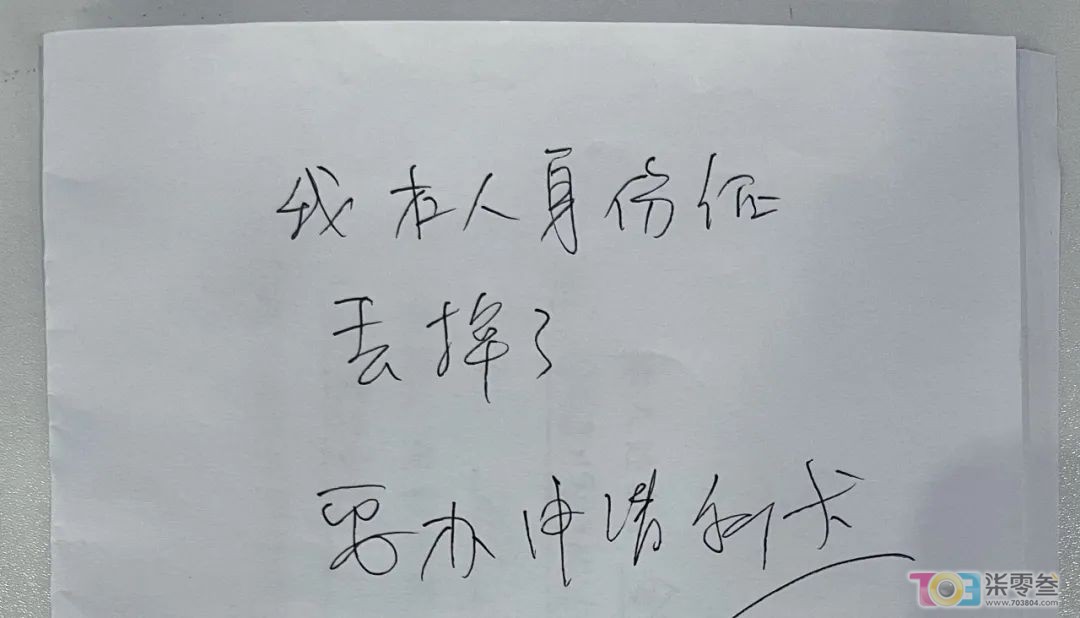 我本人身份证
丢掉了
要办申请新卡
703 柒零叁
www.703804.com